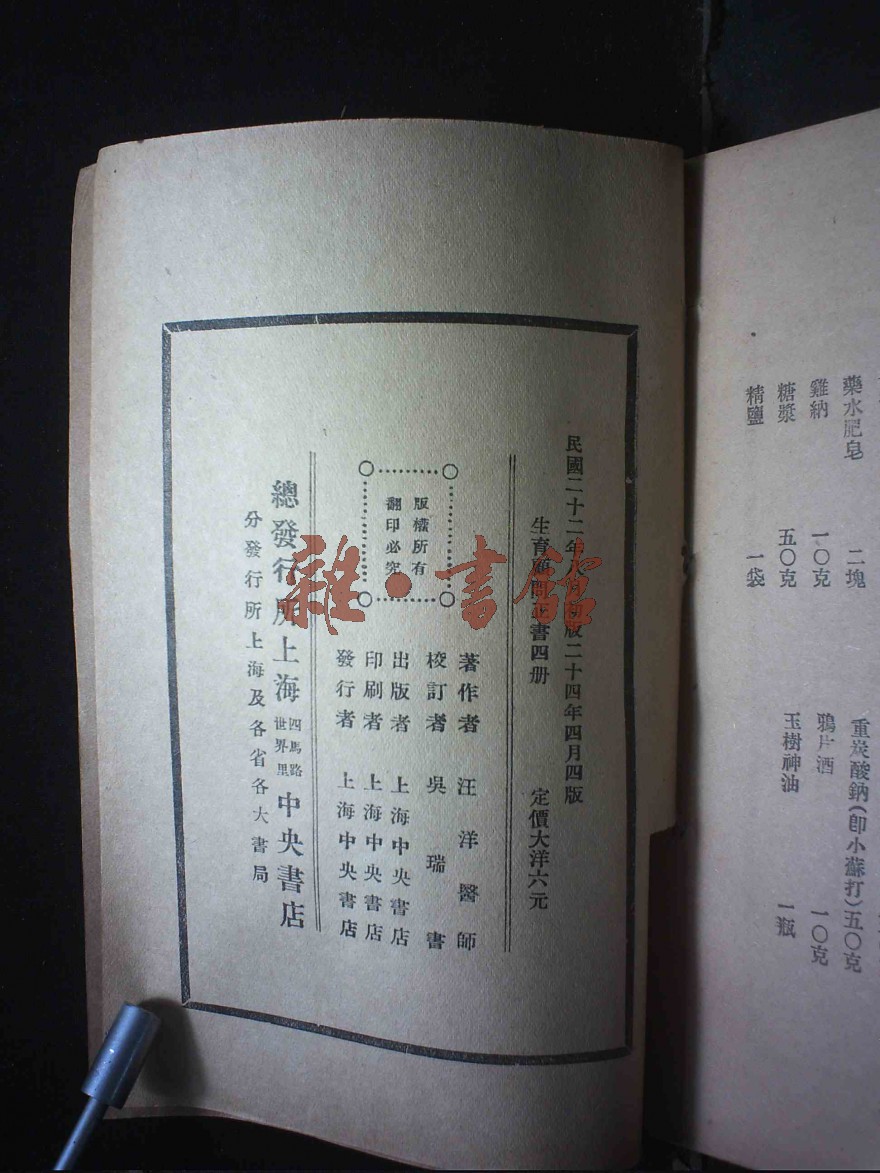 藥水肥皂 二塊
雞納 一〇克
糖漿 五〇克
精鹽 一袋
重炭酸鈉(卽小蘇打)五〇克
鴉片酒 一〇克
玉樹神油 一瓶
民國二十二年 初版二十四年四月四版
生育顧問 書四册 定價大洋六元
著作者 汪洋醫師
校訂者 吳瑞書
出版者 上海中央書店
印刷者 上海中央書店
發行者 上海中央書店
版權所有
翻印必究
總發行所上海四馬路世界里中央書店
分發行所上海及各省各大書局
雜·書館